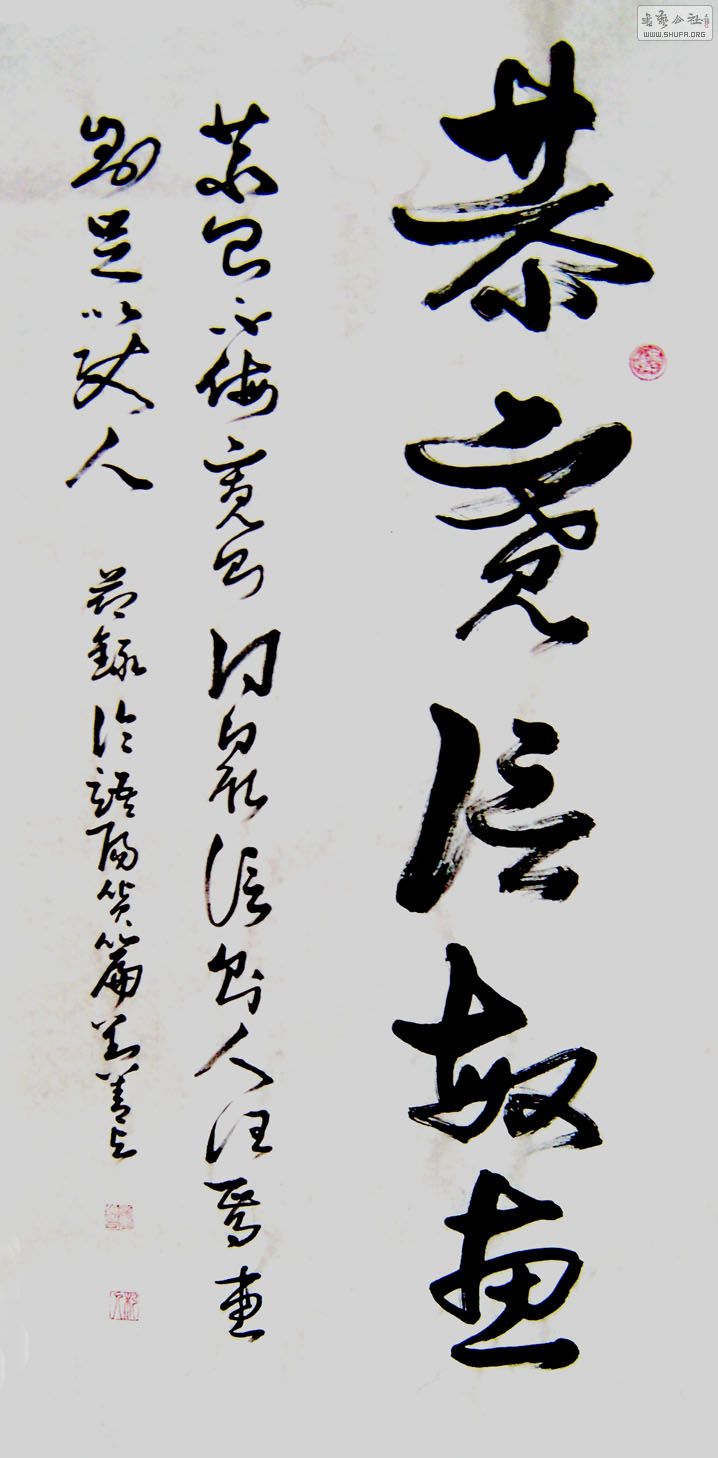 恭寬信敏惠
恭則不侮寬則得眾信則人任焉惠
則足以使人 節錄論語陽貨篇
書藝公社
WWW.SHUFA.ORG